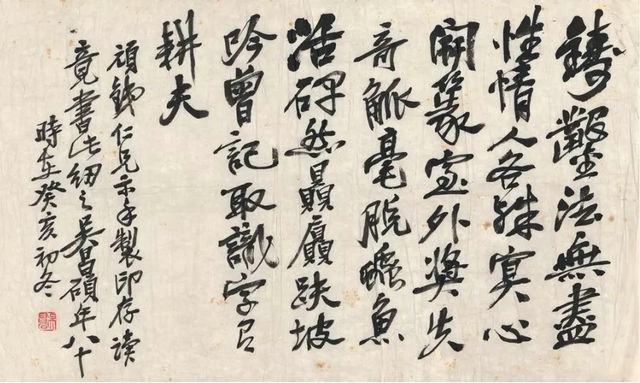 鑄鑿法無盡
性情人各殊冥心
開篆室外獎失
奇觚毫脫蟫魚
活碑然贔屭趺坡
吟曾記取識字有
耕夫
頑鐵仁兄示手製印存讀
竟書此紉之吳昌碩年八十
時在癸亥初冬